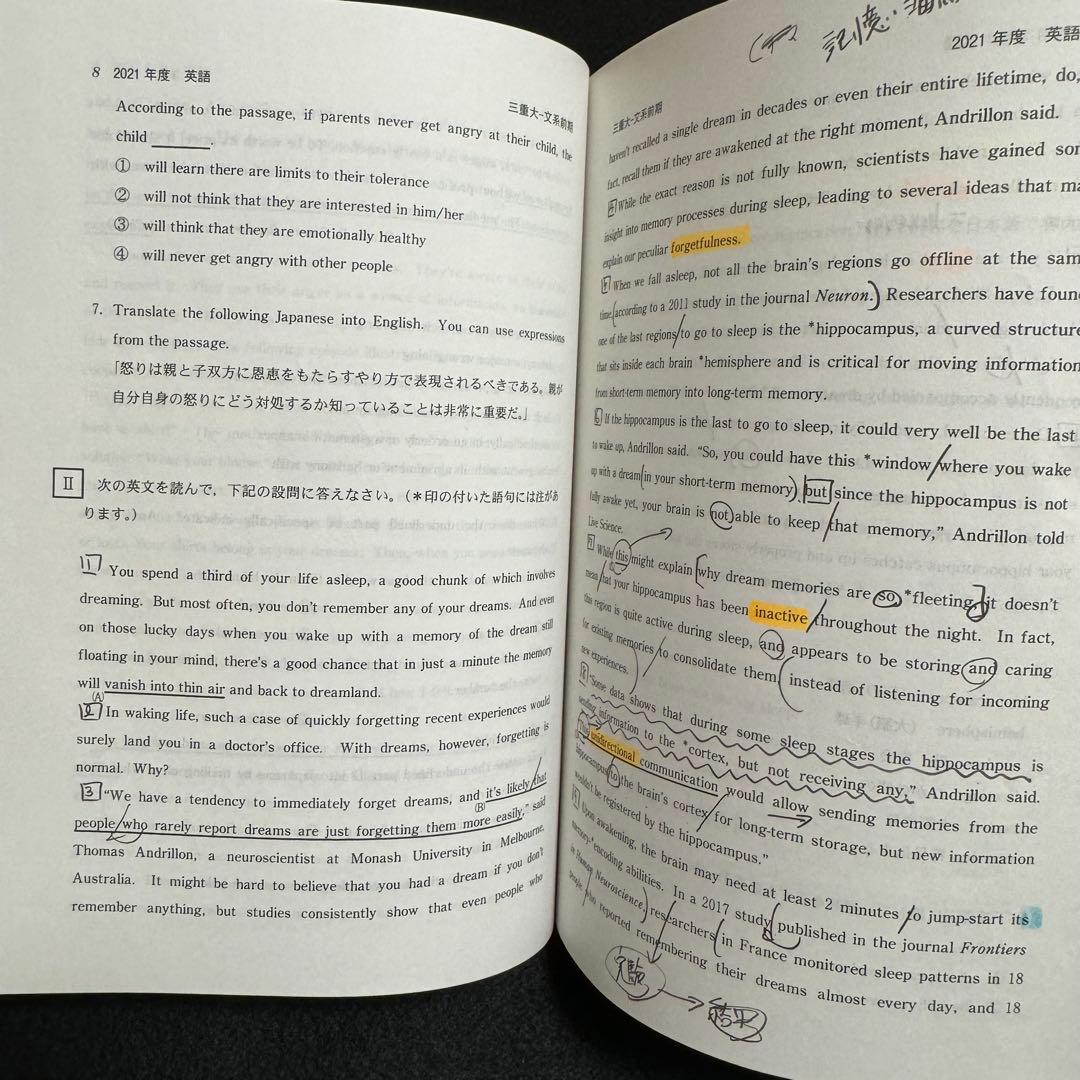 8 2021年度 英語
三重大-文系前期
According to the passage, if parents never get angry at their child, the
child ____ .
① will learn there are limits to their tolerance
② will not think that they are interested in him/her
③ will think that they are emotionally healthy
④ will never get angry with other people
7. Translate the following Japanese into English. You can use expressions
from the passage.
「怒りは親と子双方に恩恵をもたらすやり方で表現されるべきである。親が
自分自身の怒りにどう対処するか知っていることは非常に重要だ。」
Ⅱ 次の英文を読んで，下記の設問に答えなさい。（＊印の付いた語句には注があ
ります。）
1 You spend a third of your life asleep, a good chunk of which involves
dreaming. But most often, you don't remember any of your dreams. And even
on those lucky days when you wake up with a memory of the dream still
floating in your mind, there's a good chance that in just a minute the memory
will vanish into thin air and back to dreamland.
(A)
2 In waking life, such a case of quickly forgetting recent experiences would
surely land you in a doctor's office. With dreams, however, forgetting is
normal. Why?
3 "We have a tendency to immediately forget dreams, and it's likely that
(B)
people who rarely report dreams are just forgetting them more easily," said
Thomas Andrillon, a neuroscientist at Monash University in Melbourne,
Australia. It might be hard to believe that you had a dream if you don't
remember anything, but studies consistently show that even people who
記憶
2021年度 英語
三重大-文系前期
haven't recalled a single dream in decades or even their entire lifetime, do,
fact, recall them if they are awakened at the right moment, Andrillon said.
While the exact reason is not fully known, scientists have gained
insight into memory processes during sleep, leading to several ideas that
explain our peculiar forgetfulness.
When we fall asleep, not all the brain's regions go offline at the
time, according to a 2011 study in the journal Neuron. Researchers have
one of the last regions to go to sleep is the *hippocampus, a curved structure
that sits inside each brain *hemisphere and is critical for moving information
from short-term memory into long-term memory.
6 If the hippocampus is the last to go to sleep, it could very well be the last
to wake up, Andrillon said. "So, you could have this *window where you wake
up with a dream in your short-term memory, but since the hippocampus is not
fully awake yet, your brain is not able to keep that memory," Andrillon told
Live Science.
7 While this might explain why dream memories are so *fleeting, it doesn't
mean that your hippocampus has been inactive throughout the night. In fact,
this region is quite active during sleep, and appears to be storing and caring
for existing memories to consolidate them instead of listening for incoming
new experiences.
8 "Some data shows that during some sleep stages the hippocampus is
sending information to the *cortex, but not receiving any," Andrillon said.
"This unidirectional communication would allow sending memories from the
hippocampus to the brain's cortex for long-term storage, but new information
wouldn't be registered by the hippocampus."
Upon awakening, the brain may need at least 2 minutes to jump-start its
memory-*encoding abilities. In a 2017 study published in the journal Frontiers
in Human Neuroscience, researchers in France monitored sleep patterns in 18
people who reported remembering their dreams almost every day, and 18
実験
結果